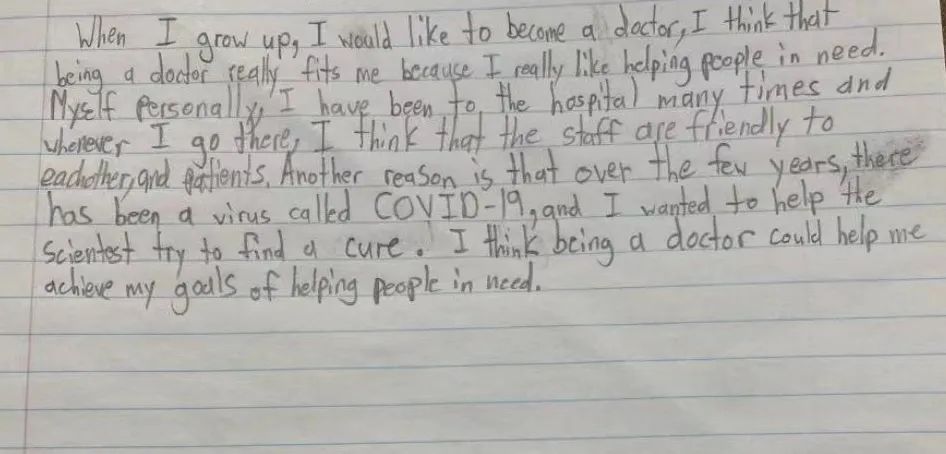 When I grow up, I would like to become a doctor, I think that
being a doctor really fits me because I really like helping people in need.
Myself Personally, I have been to the hospital many times and
whenever I go there, I think that the staff are friendly to
eachother, and patients. Another reason is that over the few years, there
has been a virus called COVID-19, and I wanted to help the
Scientest try to find a cure. I think being a doctor could help me
achieve my goals of helping people in need.